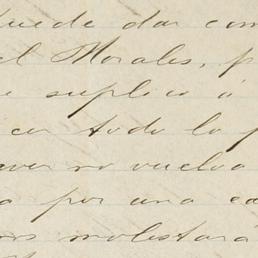 puede dar com
el Morales, p
e suplico á
cer todo lo p
aver no vuelva
o por una ca
nos molestará